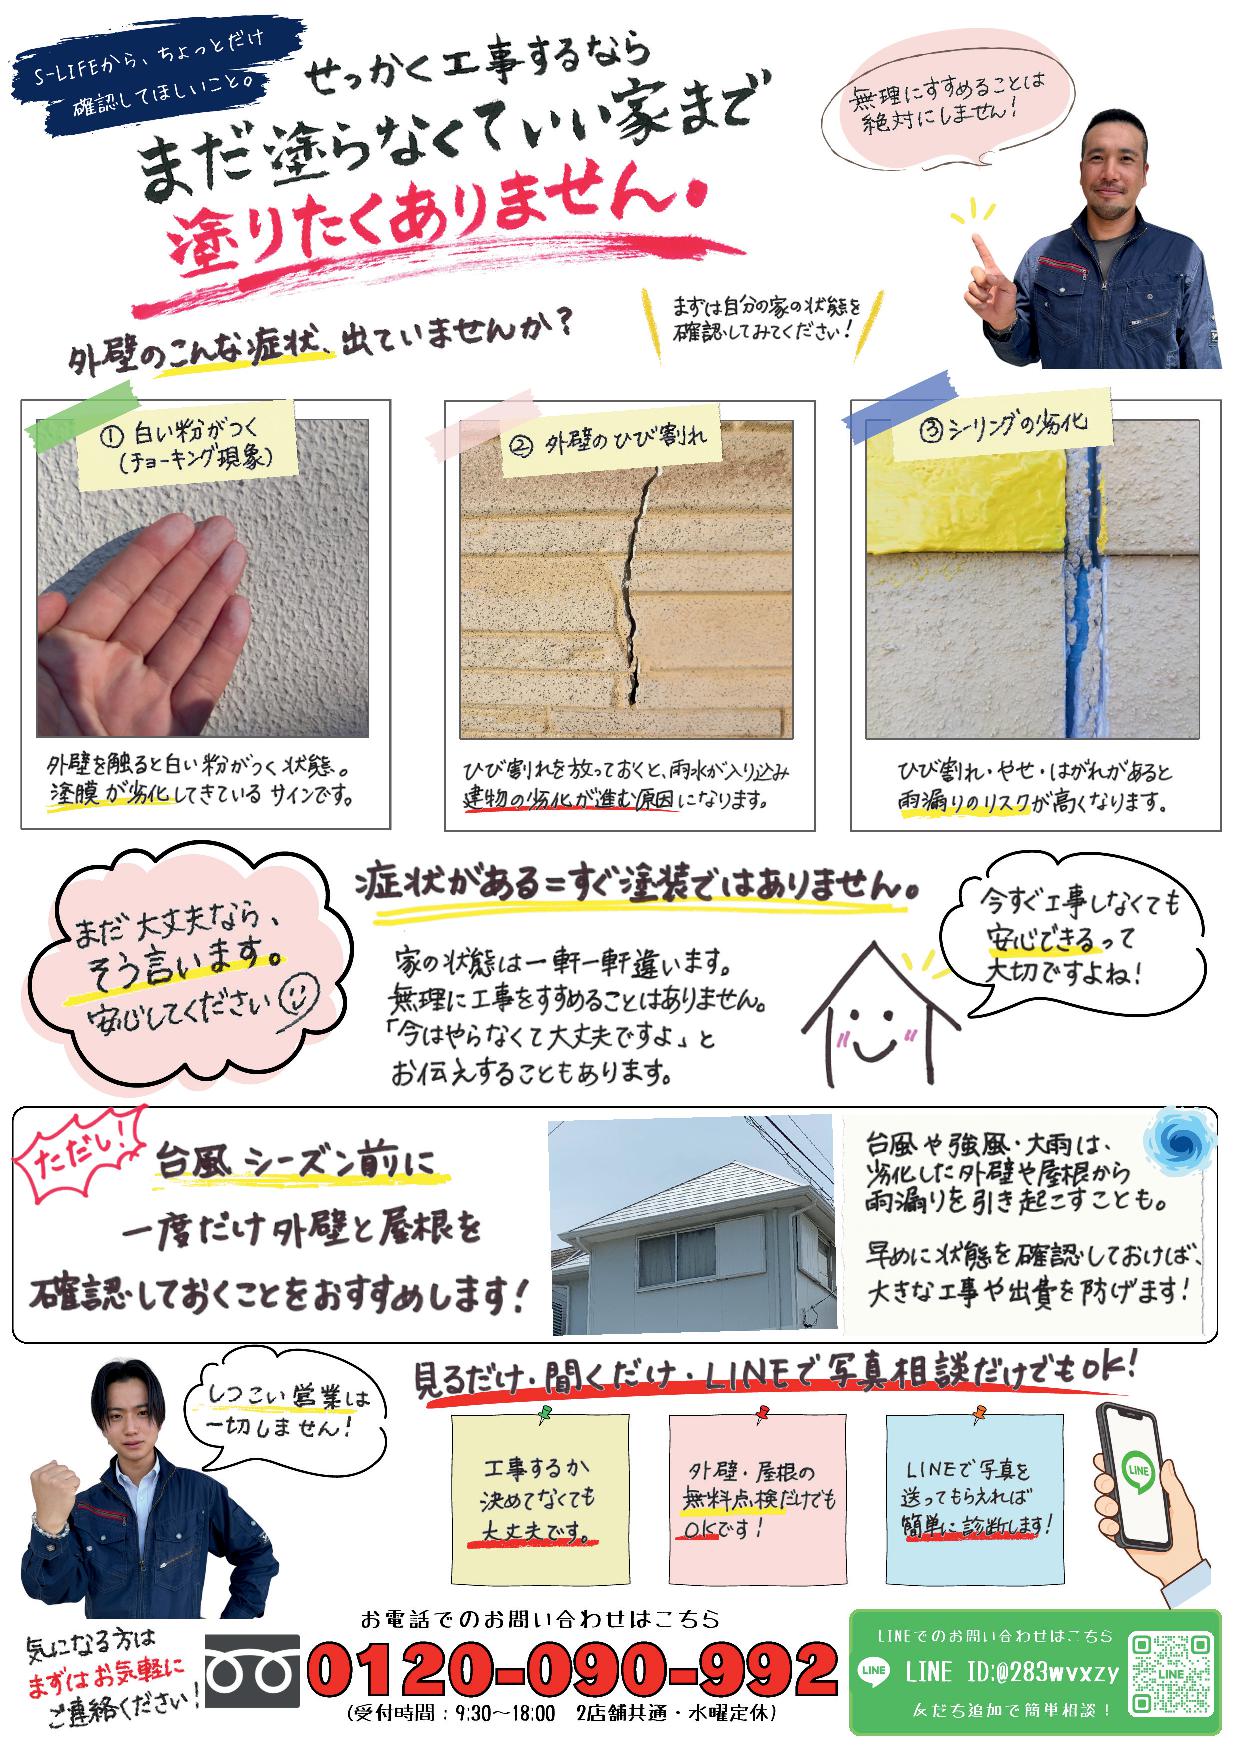 S-LIFEから、ちょっとだけ
確認してほしいこと。
せっかく工事するなら
まだ塗らなくていい家まで
塗りたくありません。
無理にすすめることは
絶対にしません！
外壁のこんな症状、出ていませんか？
まずは自分の家の状態を
確認してみてください！
① 白い粉がつく
（チョーキング現象）
外壁を触ると白い粉がつく状態。
塗膜が劣化してきているサインです。
② 外壁のひび割れ
ひび割れを放っておくと、雨水が入り込み
建物の劣化が進む原因になります。
③シーリングの劣化
ひび割れ・やせ・はがれがあると
雨漏りのリスクが高くなります。
まだ大丈夫なら、
そう言います。
安心してください
症状がある＝すぐ塗装ではありません。
家の状態は一軒一軒違います。
無理に工事をすすめることはありません。
「今はやらなくて大丈夫ですよ」と
お伝えすることもあります。
今すぐ工事しなくても
安心できるって
大切ですよね！
ただし！
台風シーズン前に
一度だけ外壁と屋根を
確認しておくことをおすすめします！
台風や強風・大雨は、
劣化した外壁や屋根から
雨漏りを引き起こすことも。
早めに状態を確認しておけば、
大きな工事や出費を防げます！
しつこい営業は
一切しません！
見るだけ・聞くだけ・LINEで写真相談だけでもOK！
工事するか
決めてなくても
大丈夫です。
外壁・屋根の
無料点検だけでも
OKです！
LINEで写真を
送ってもらえれば
簡単に診断します！
LINE
気になる方は
まずはお気軽に
ご連絡ください！
お電話でのお問い合わせはこちら
0120-090-992
（受付時間：9:30～18:00　2店舗共通・水曜定休）
LINEでのお問い合わせはこちら
LINE LINE ID:@283wvxzy
友だち追加で簡単相談！
LINE